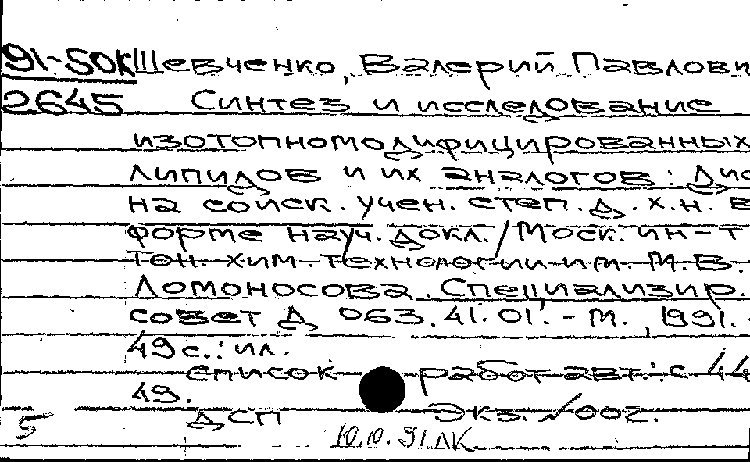 91-50К Шевченко, Валерий Павлови
2645 Синтез и исследование
изотопномодифицированных
липидов и их аналогов : Дис
на соиск. учен. степ. д.х.н. в
форме науч. докл. / Моск. ин-т
тон. хим. технологии им. М.В.
Ломоносова. Специализир.
совет Д 063.41.01. - М., 1991. -
49 с.: ил.
список работ авт.: с. 44
49.
ДСП Экз. №002.
5 10.10.91 ЛК